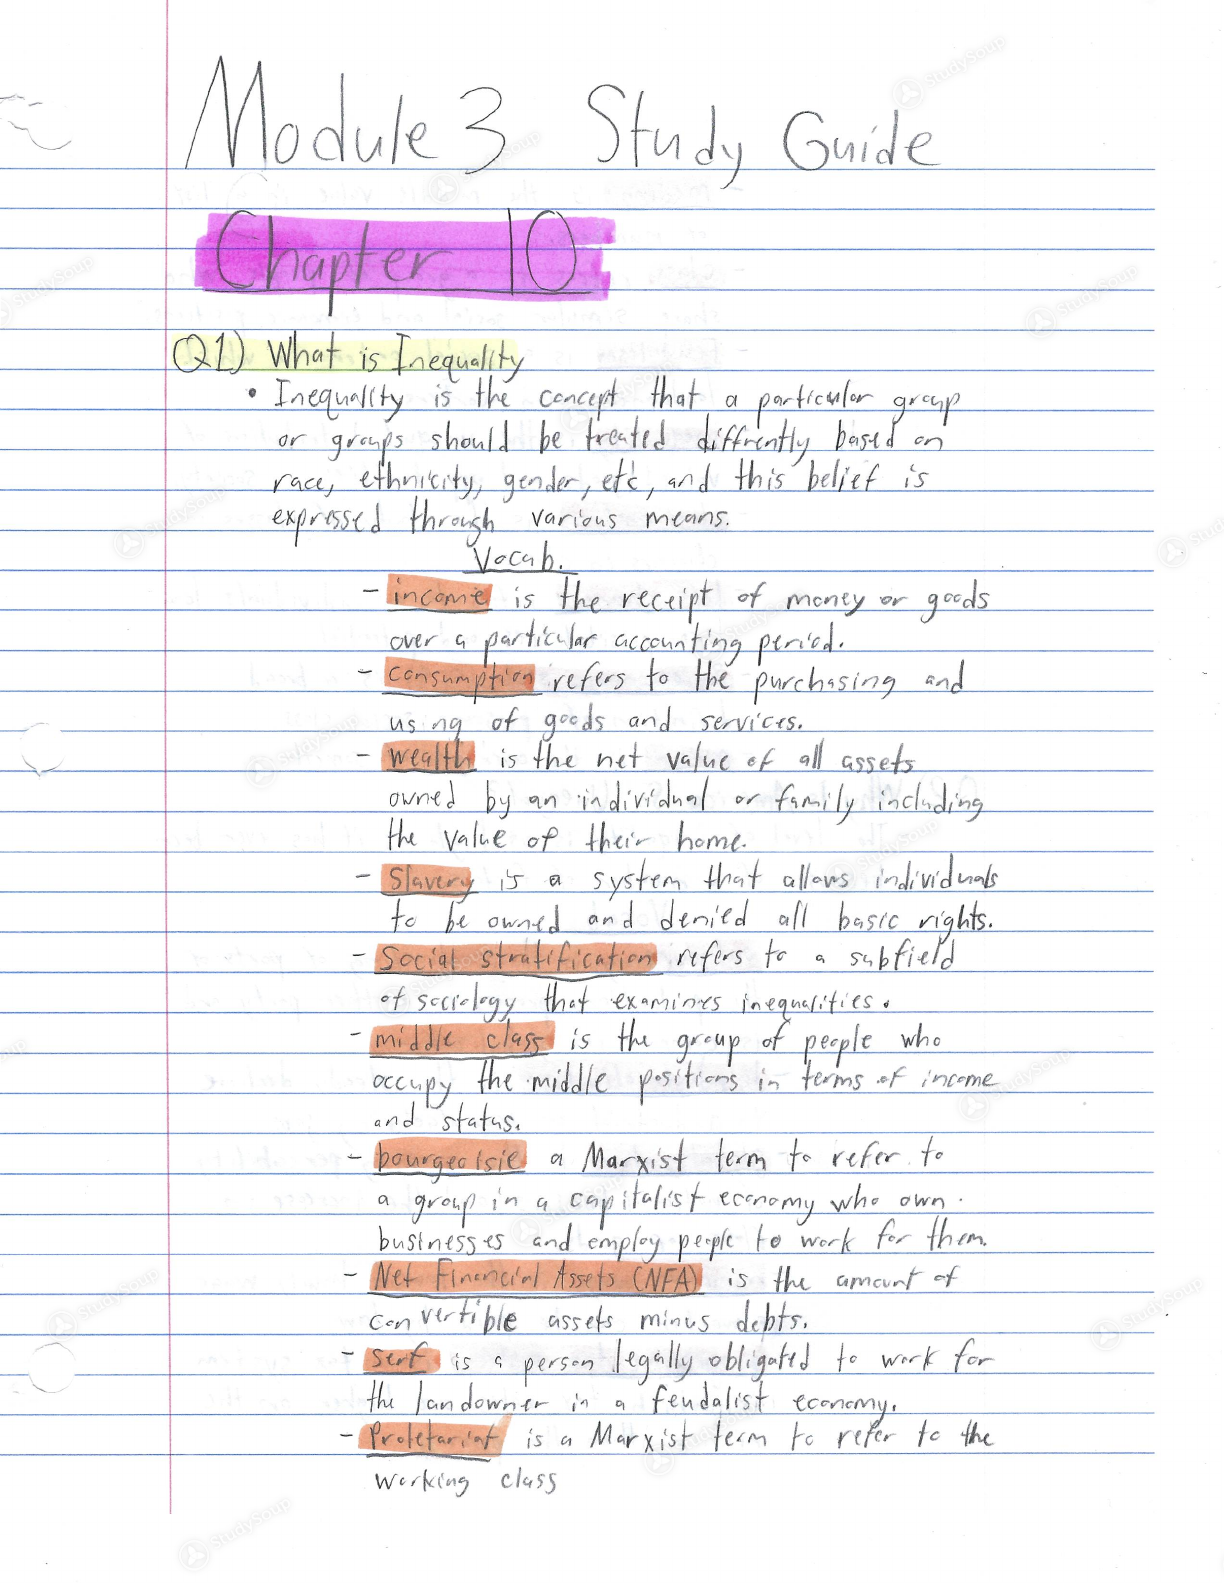 Module 3 Study Guide
Chapter 10
Q1) What is Inequality
• Inequality is the concept that a particular group
or groups should be treated diffrently based on
race, ethnicity, gender, etc, and this belief is
expressed through various means.
Vocab.
- income is the receipt of money or goods
over a particular accounting period.
- consumption refers to the purchasing and
using of goods and services.
- wealth is the net value of all assets
owned by an individual or family including
the value of their home.
- Slavery is a system that allows individuals
to be owned and denied all basic rights.
- Social stratification refers to a subfield
of sociology that examines inequalities.
- middle class is the group of people who
occupy the middle positions in terms of income
and status.
- bourgeoisie a Marxist term to refer to
a group in a capitalist economy who own
businesses and employ people to work for them.
- Net Financial Assets (NFA) is the amount of
convertible assets minus debts.
- serf is a person legally obligated to work for
the landowner in a feudalist economy.
- Proletariat is a Marxist term to refer to the
working class
StudySoup